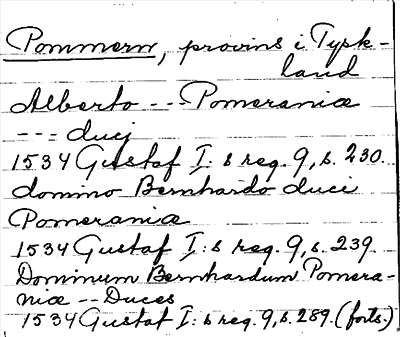 Pommern, provins i Tysk-
land
Alberto --- Pomeraniæ
--- duci
1534 Gustaf I:s reg. 9, s. 230.
domino Bernhardo duci
Pomerania
1534 Gustaf I:s reg. 9, s. 239.
Dominum Bernhardum Pomera-
niæ -- Duces
1534 Gustaf I:s reg. 9, s. 289. (forts.)